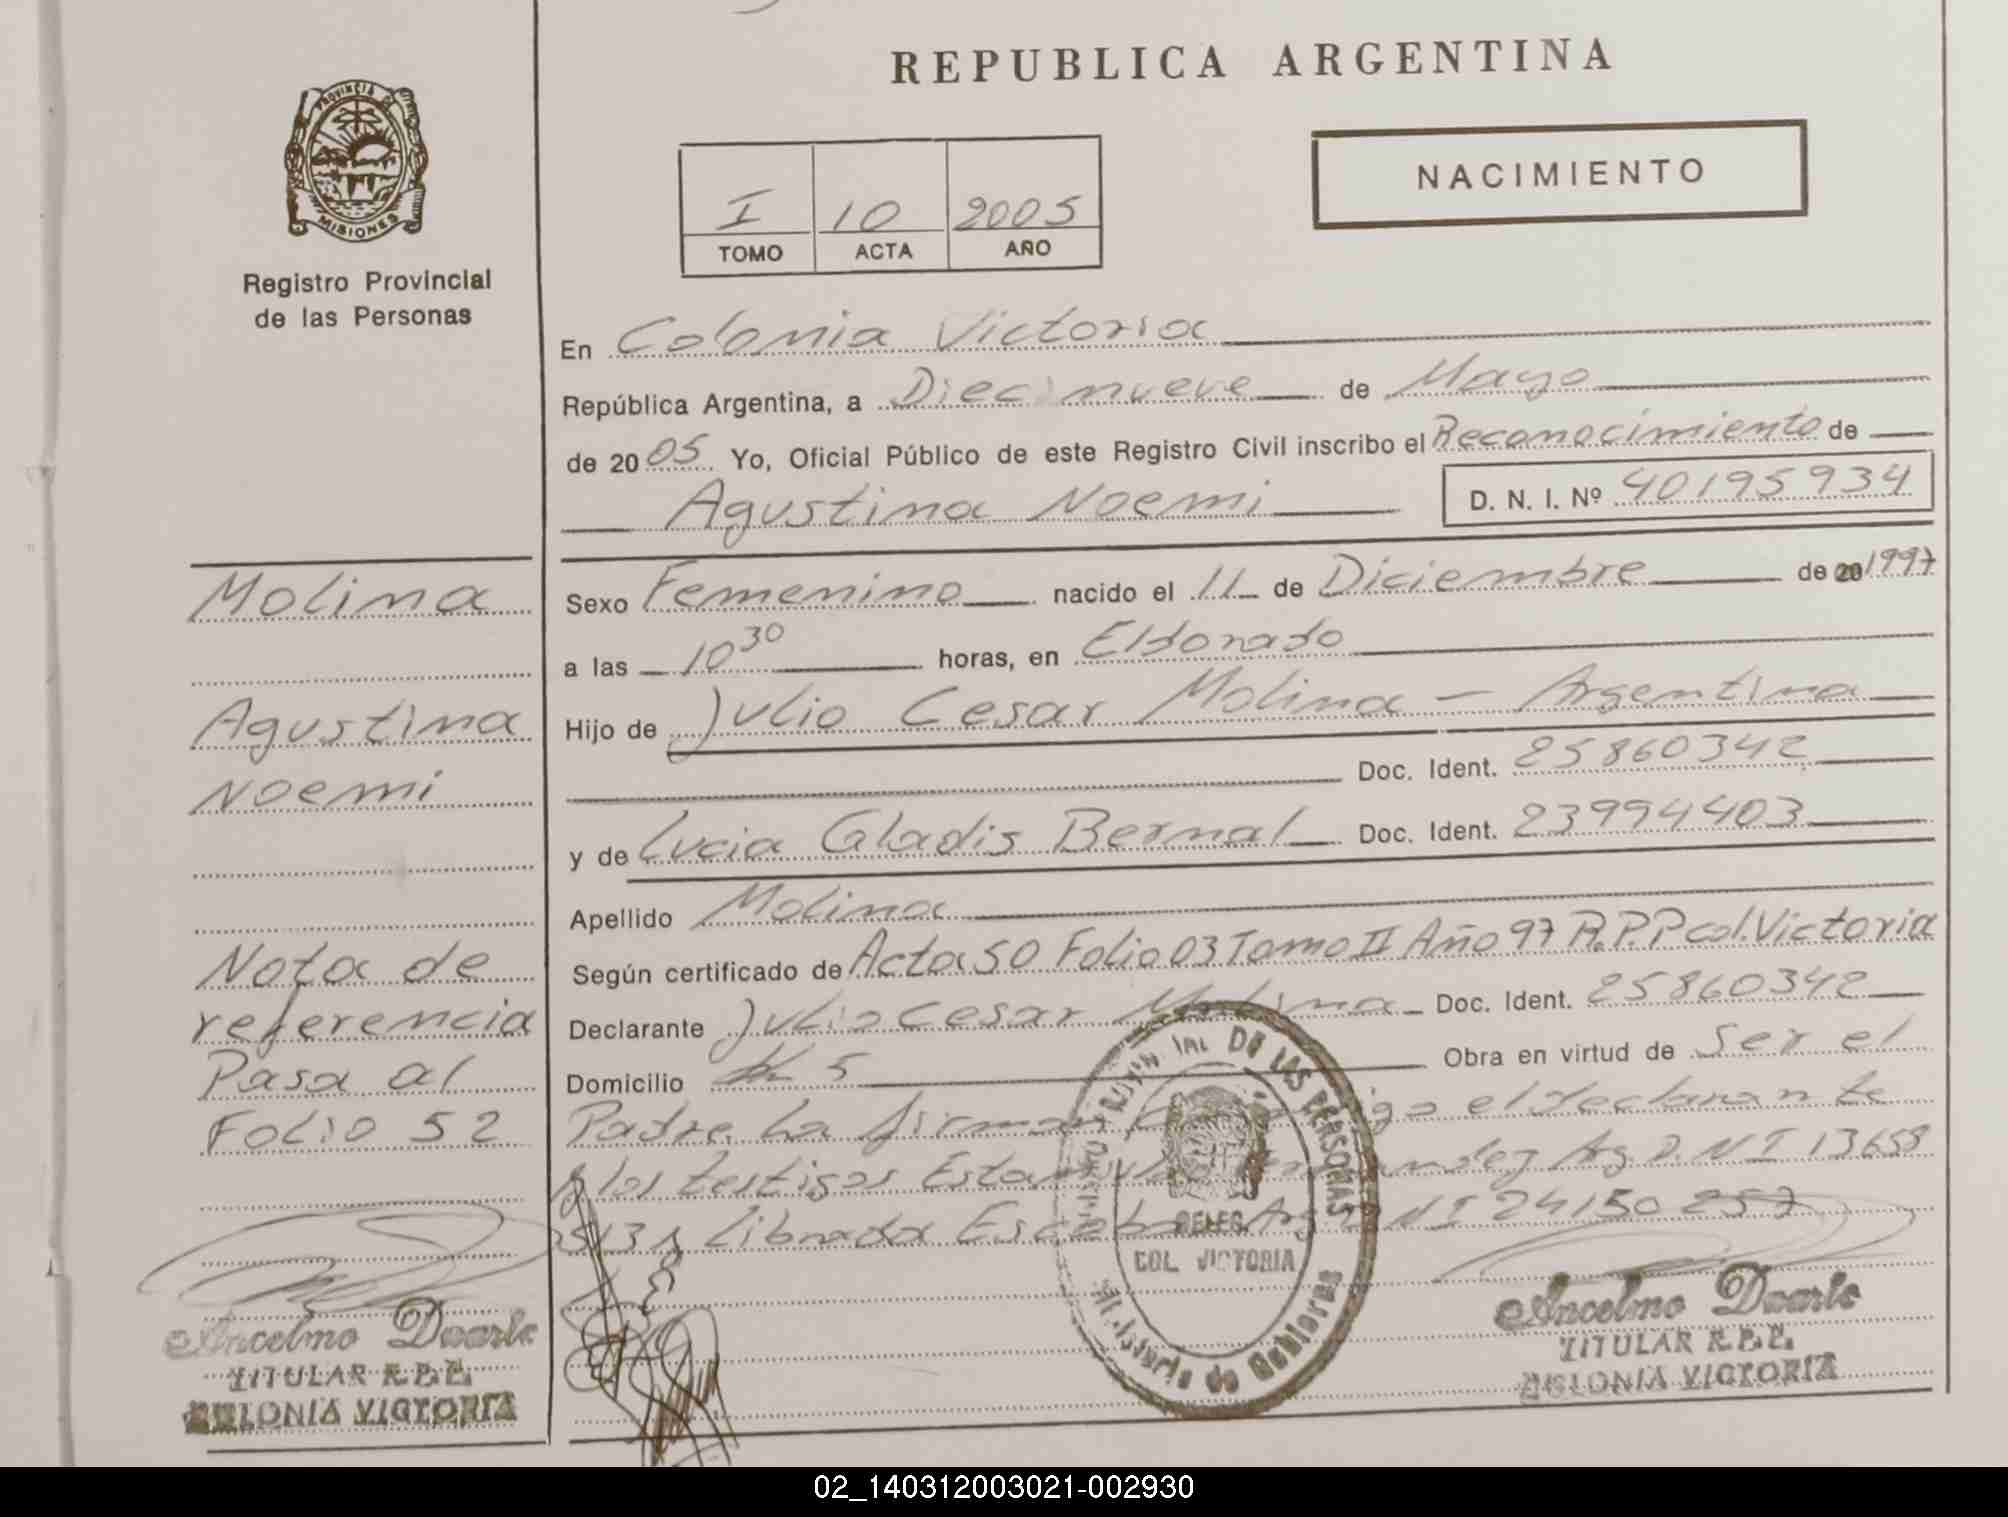 REPUBLICA ARGENTINA
PROVINCIA DE
MISIONES
Registro Provincial
de las Personas
I 10 2005
TOMO ACTA AÑO
NACIMIENTO
En Colonia Victoria
República Argentina, a Diecinueve de Mayo
de 20 05 Yo, Oficial Público de este Registro Civil inscribo el Reconocimiento de
Agustina Noemi D. N. I. Nº 40195934
Molina
Agustina
Noemi
Sexo Femenino nacido el 11 de Diciembre de 20 1997
a las 10 30 horas, en Eldorado
Hijo de Julio Cesar Molina - Argentina
Doc. Ident. 25860342
y de Lucia Gladis Bernal Doc. Ident. 23994403
Apellido Molina
Según certificado de Acta 50 Folio 03 Tomo II Año 97 R.P.P col. Victoria
Declarante Julio Cesar Molina Doc. Ident. 25860342
Domicilio 5 Obra en virtud de Ser el
Padre La firman el declarante
y los testigos Arg D.N I 13658
Librada Arg N I 24150 257
Nota de
referencia
Pasa al
Folio 52
DE LAS PERSONAS
DELEG.
COL. VICTORIA
Ministerio de Gobierno
Ancelmo Duarte
TITULAR R.P.P.
COLONIA VICTORIA
Ancelmo Duarte
TITULAR R.P.P.
COLONIA VICTORIA
02_140312003021-002930